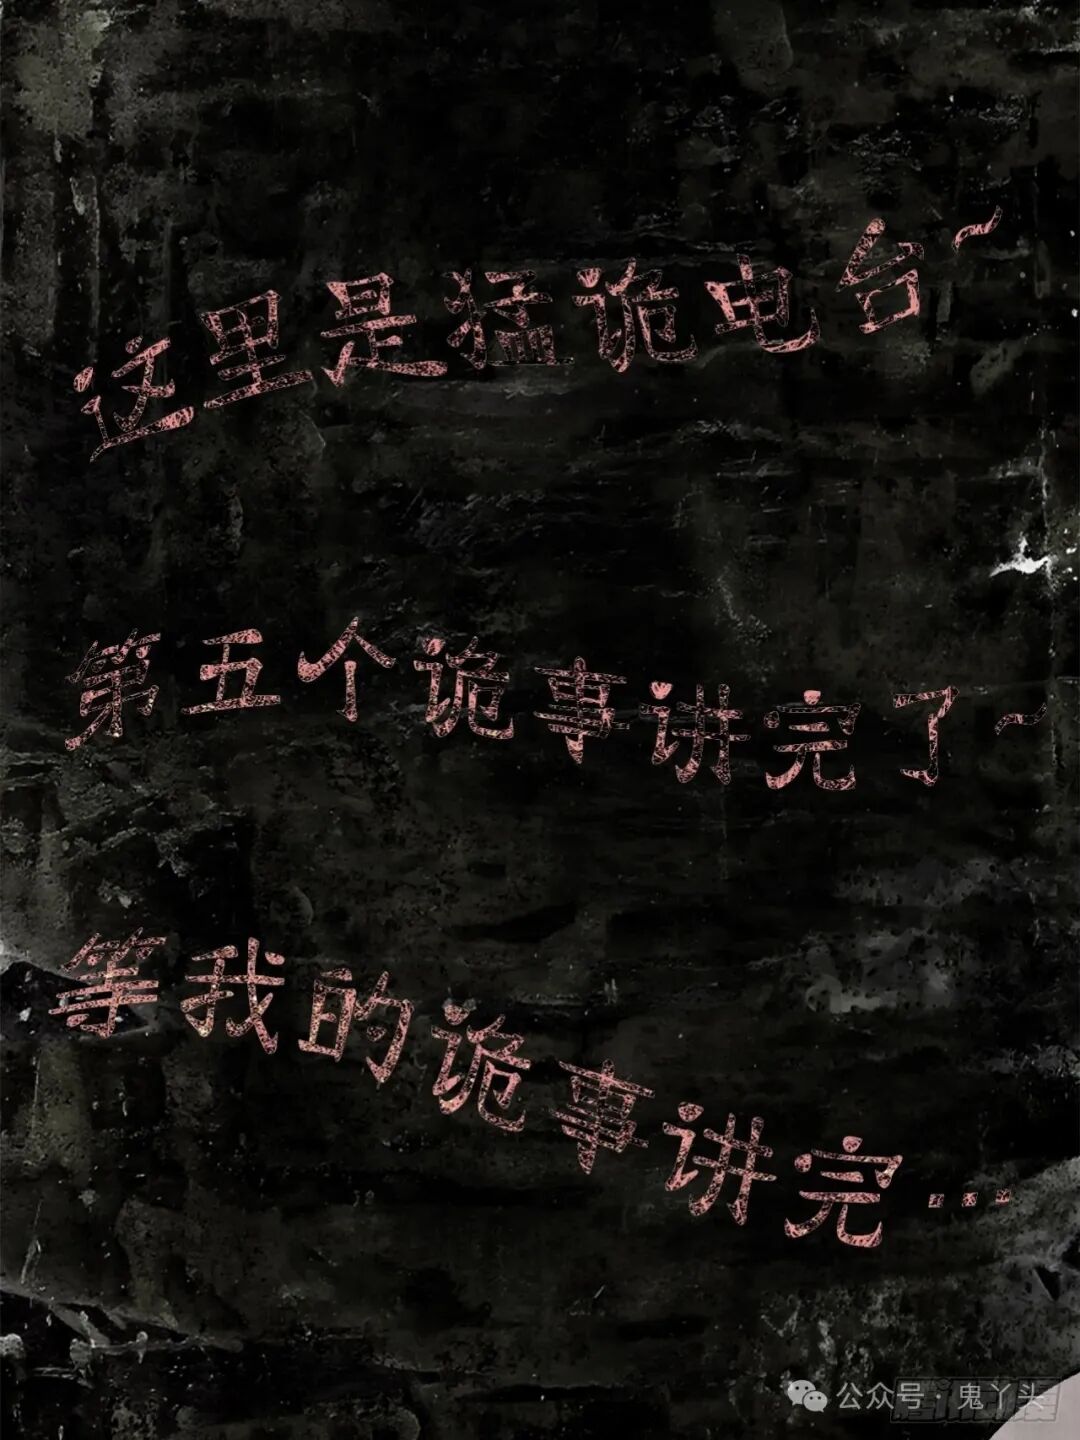 这里是猛诡电台~
第五个诡事讲完了~
等我的诡事讲完...
公众号·鬼丫头